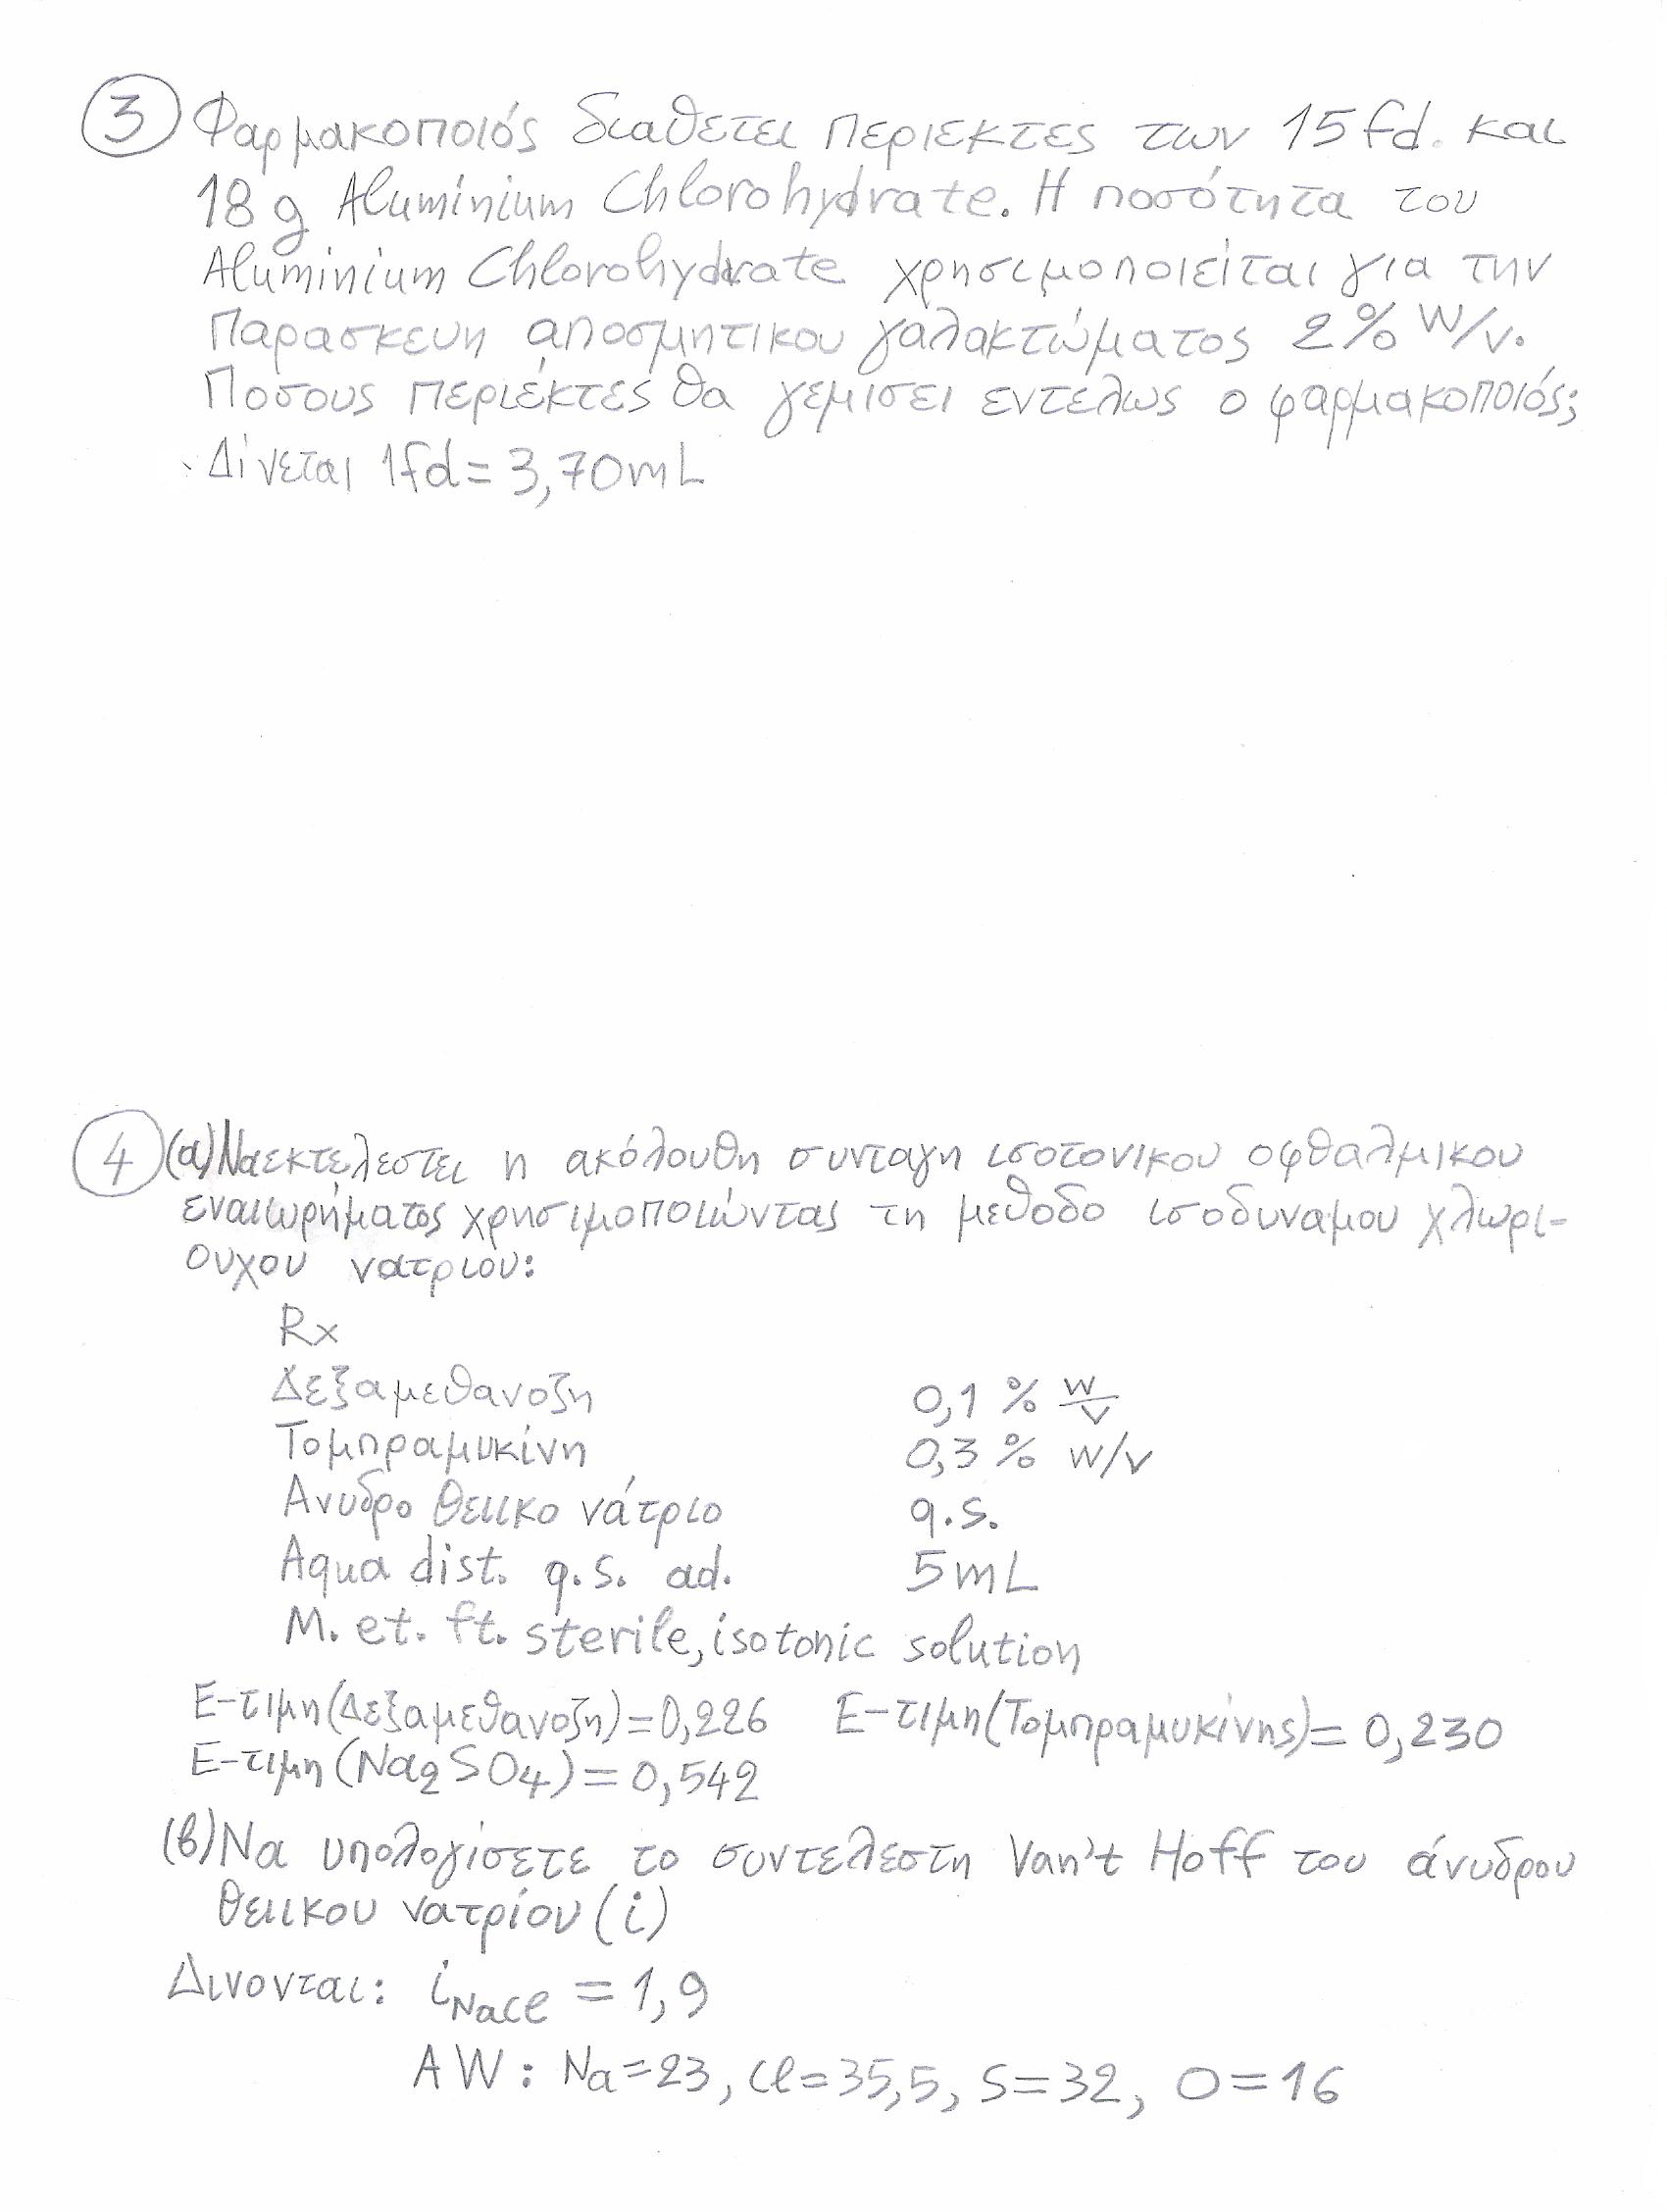 3 Φαρμακοποιός διαθετει περιεκτες των 15 fd. και
18 g Aluminium Chlorohydrate. Η ποσότητα του
Aluminium Chlorohydrate χρησιμοποιείται για την
Παρασκευη αποσμητικου γαλακτώματος 2% w/v.
Ποσους περιέκτες θα γεμισει εντελως ο φαρμακοποιός;
Δίνεται 1fd = 3,70mL
4 (α) Να εκτελεστει η ακόλουθη συνταγη ισοτονικου οφθαλμικου
εναιωρήματος χρησιμοποιώντας τη μεθοδο ισοδυναμου χλωρι-
ουχου νατριου:
Rx
Δεξαμεθανοζη 0,1 % w/v
Τομπραμυκίνη 0,3 % w/v
Ανυδρο θειικο νάτριο q.s.
Aqua dist. q.s. ad. 5mL
M. et. ft. sterile, isotonic solution
Ε-τιμη(Δεξαμεθανοζη)=0,226 Ε-τιμη(Τομπραμυκίνης)= 0,230
Ε-τιμη(Na2SO4)=0,542
(β) Να υπολογίσετε το συντελεστη Van't Hoff του άνυδρου
θειικου νατρίου (i)
Δινονται: iNaCl = 1,9
AW: Na=23, Cl=35,5, S=32, O=16